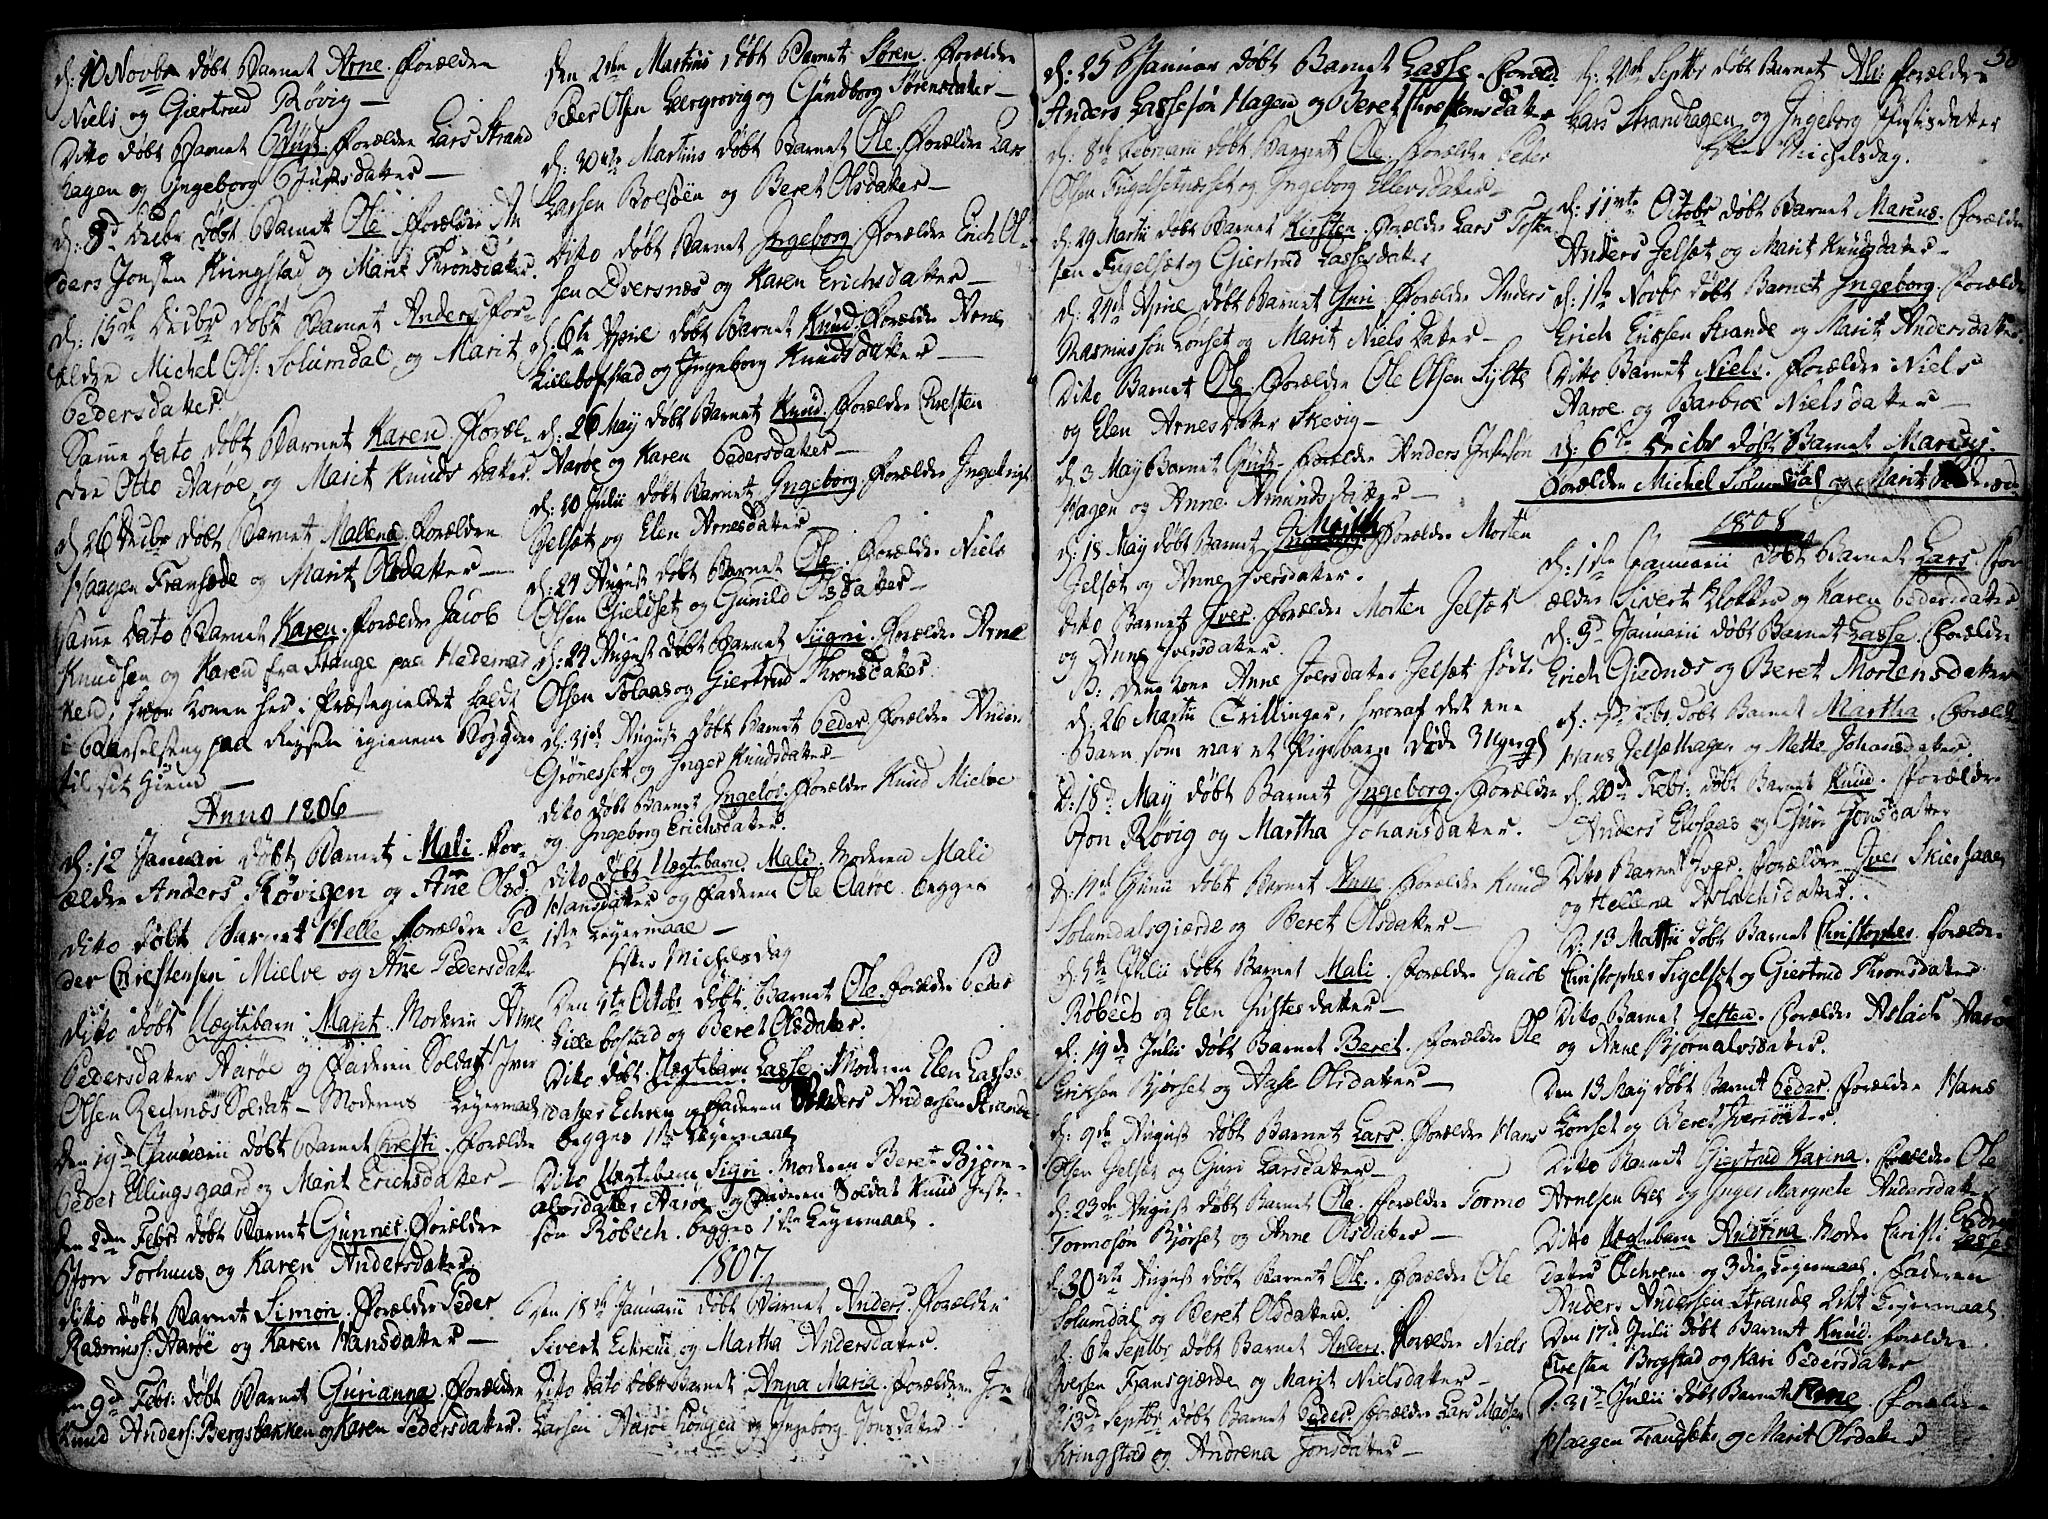 d: 10 Novbr døbt Barnet Arne. Forældre
Niels og Giertrud Røvig —
Dito døbt Barnet Gjust. Forældre Lars Strand
hagen og Ingeborg Justsdatter —
d: 8d Decbr døbt Barnet Ole Forældre An
ders Jonsen Kringstad og Marit Thronsdatter.
d: 15de Decbr døbt Barnet Anders For-
ældre Michel Ols: Solumdal og Marit
Pedersdatter.
Samme dato døbt Barnet Karen. Foræl-
dre Otto Aarøe og Marit Knudsdatter.
d 26 Decbr døbt Barnet Mallena. Forældre
Haagen Fransøde og Marit Olsdatter —
samme dato Barnet Karen. Forældre Jacob
Knudsen og Karen fra Stange paa Hedemar
ken, konen her i Præstegieldet faldt
i Barselseng paa Reysen igienem Bøygden
til sit Hiem —
Anno 1806
d: 12 Januari døbt Barnet Mali. For-
ældre Anders Røvigen og Ane Olsd:
dito døbt Barnet Helle Forældre Pe
der Christensen Mielve og Ane Pedersdatr
dito døbt Uægtebarn Marit. Moderen Anne
Pedersdatter Aarøe og Faderen Soldat Iver
Olsen Rechnæs Soldat — Moderens Leyermaal
den 19d Januarii døbt Barnet Christi. Forældre
Peder Ellingsgaard og Marit Erichsdatter —
den 2den Febr: døbt Barnet Gunner. Forældre
Torhuus og Karen Andersdatter.
dito døbt Barnet Simon. Forældre Peder
Rasmuss: Aarøe og Karen Hansdatter —
den 9d Febr: døbt Barnet Gurianna. Forældre
Knud Anders: Bergsbakken og Karen Pedersdatter.
den 2den Martius døbt Barnet Søren. Forældre
Peder Olsen Leergrovig og Gundborg Sørensdatter —
d: 30te Martius døbt Barnet Ole. Forældre Lars
Lassen Bolsøen og Beret Olsdatter —
Dito døbt Barnet Ingeborg. Forældre Erich Ol-
sen Dversnæs og Karen Erichsdatter —
d: 6te April døbt Barnet Knud. Forældre Arne
Lillebostad og Ingeborg Knudsdatter —
d: 26 May døbt Barnet Knud. Forældre Christen
Aarøe og Karen Pedersdatter —
d: 10 Julii døbt Barnet Ingeborg. Forældre Ingebrigt
Jelset og Elen Arnesdatter —
d: 24 August døbt Barnet Ole. Forældre Niels
Olsen Gieldset og Gunild Olsdatter —
d: 24 August døbt Barnet Sygni. Forældre Arne
Olsen Solaas og Giertrud Thronsdatter.
d: 31te August døbt Barnet Peder. Forældre Anders
Grønesset og Inger Knudsdatter —
dito døbt Barnet Ingeløs. Forældre Knud Mielve
og Ingeborg Erichsdatter.
dito døbt Uægtebarn Mali. Moderen Mali
Hansdatter og Faderen Ole Aarøe. begges
1ste Leyermaal —
Efter Michelsdag
Den 4te Octobr døbt Barnet Ole. Forældre Peder
Lillebostad og Beret Olsdatter.
Dito døbt Uægtebarn Lasse. Moderen Elen Lasses
datter Echren og Faderen Anders Andersen Strande
begges 1ste Leyermaal
Dito Uægtebarn Sigri. Moderen Beret Bjørn-
alvsdatter Aarøe og Faderen Soldat Knud Jeste-
søn Røbech. begges 1ste Leyermaal.
1807
Den 18de Januarii døbt Barnet Anders. Forældre
Sivert Echren og Martha Andersdatter.
Dito dato døbt Barnet Anna Maria. Forældre Jon
Larsen Aarøe og Ingeborg Jonsdatter
d: 25 Januar døbt Barnet Lasse. Foræld:
Anders Lassesøn Hagen og Beret Christensdatter
d: 8de Februarii døbt Barnet Ole. Forældre Peder
Olsen Fugelsetnæsset og Ingeborg Ellersdatter —
d: 29 Martii døbt Barnet Kirsten. Forældre Lars Tosten
sen Fugelsæt og Giertrud Lassesdatter
d: 24d April døbt Barnet Guri. Forældre Anders
Rasmussøn Lønset og Marit Nielsdatter —
Dito Barnet Ole. Forældre Ole Olsen Sylte
og Elen Arnesdatter Skevig —
d: 3 May Barnet Gjust. Forældre Anders
Hagen og Anne Amundsdatter —
d: 18 May døbt Barnet Marith Forældre Morten
Jelsæt og Anne Iversdatter.
dito Barnet Iver. Forældre Morten Jelsæt
og Anne Iversdatter.
B: denne kone Anne Iversdatter Jelsæt fødte
d: 26 Martii Trillinger, hvoraf det ene
Barn som var et Pigebarn døde
D: 18d May døbt Barnet Ingeborg. Forældre
Jon Røvig og Martha Johansdatter.
d: 14d Junii døbt Barnet Anne. Forældre Knud
Solumdalsgierde og Beret Olsdatter —
d: 5te Julii døbt Barnet Mali. Forældre Jacob
Røbech og Elen Justesdatter —
d: 19de Julii døbt Barnet Beret. Forældre Ole
Eriksen Bjørset og Aase Olsdatter —
d: 9de August døbt Barnet Lars. Forældre Hans
Olsen Jelset og Guri Larsdatter —
d: 23de August døbt Barnet Ole. Forældre Tormo
Tormosøn Bjørset og Anne Olsdatter —
d: 30te August døbt Barnet Ole. Forældre Ole
Solumdal og Beret Olsdatter.
d: 6te Septbr døbt Barnet Anders. Forældre Niels
Iversen Fransgiærde og Marit Nielsdatter —
d: 13de Septbr døbt Barnet Peder. Forældre Lars Madsen
Kringstad og Andrena Jonsdatter —
d: 20de Septbr døbt Barnet Ali: Forældre
Lars Strandhagen og Ingeborg Justsdatter
Efter Michelsdag.
d: 11te Octobr døbt Barnet Marcus. Forældre
Anders Jelset og Marit Knudsdatter —
d: 1ste Novbr døbt Barnet Ingeborg. Forældre
Erich Eriksen Strande og Marit Andersdatter.
Dito Barnet Niels. Forældre Niels
Aarøe og Barbroe Nielsdatter —
d: 6te Decbr døbt Barnet Marcus.
Forældre Michel Solumdal og Marit Pedersd
1808
d: 1ste Januarii døbt Barnet Lars. For
ældre Sivert Klokker og Karen Pedersdatter
d: 3d Januarii døbt Barnet Lasse. Forældre
Erich Giednæs og Beret Mortensdatter
d: 7de Febr: døbt Barnet Martha. Forældr
Hans Jelsæthagen og Mette Johansdatter
d: 20d Febr: døbt Barnet Knud. Forældre
Anders Elvsaas og Guri Jonsdatter
Dito Barnet Iver. Forældre Iver Skiersaae
og Hellena Aslachsdatter.
D: 13 Martii døbt Barnet Christopher. Forældre
Christopher Sigelset og Giertrud Thronsdatter
Dito Barnet Josten. Forældre Aslach Aarøe
og Anne Bjørnalvsdatter.
Den 13 May døbt Barnet Peder. Forældre Hans
Lønset og Beret Iversdatter.
Dito Barnet Giertrud Karina. Forældre Ole
Arnesen Rek og Inger Margrete Andersdatter
Dito Uægtebarn Andrina. Moder Christi Endres
datter Echrem og 3die Leyermaal. Faderen
Anders Andersen Strande 2det Leyermaal
Den 17d Julii døbt Barnet Knud. Forældre
Christen Brogstad og Kari Pedersdatter
D: 31te Julii døbt Barnet Arne. Forældre
Haagen Frandsøte og Marit Olsdatter.